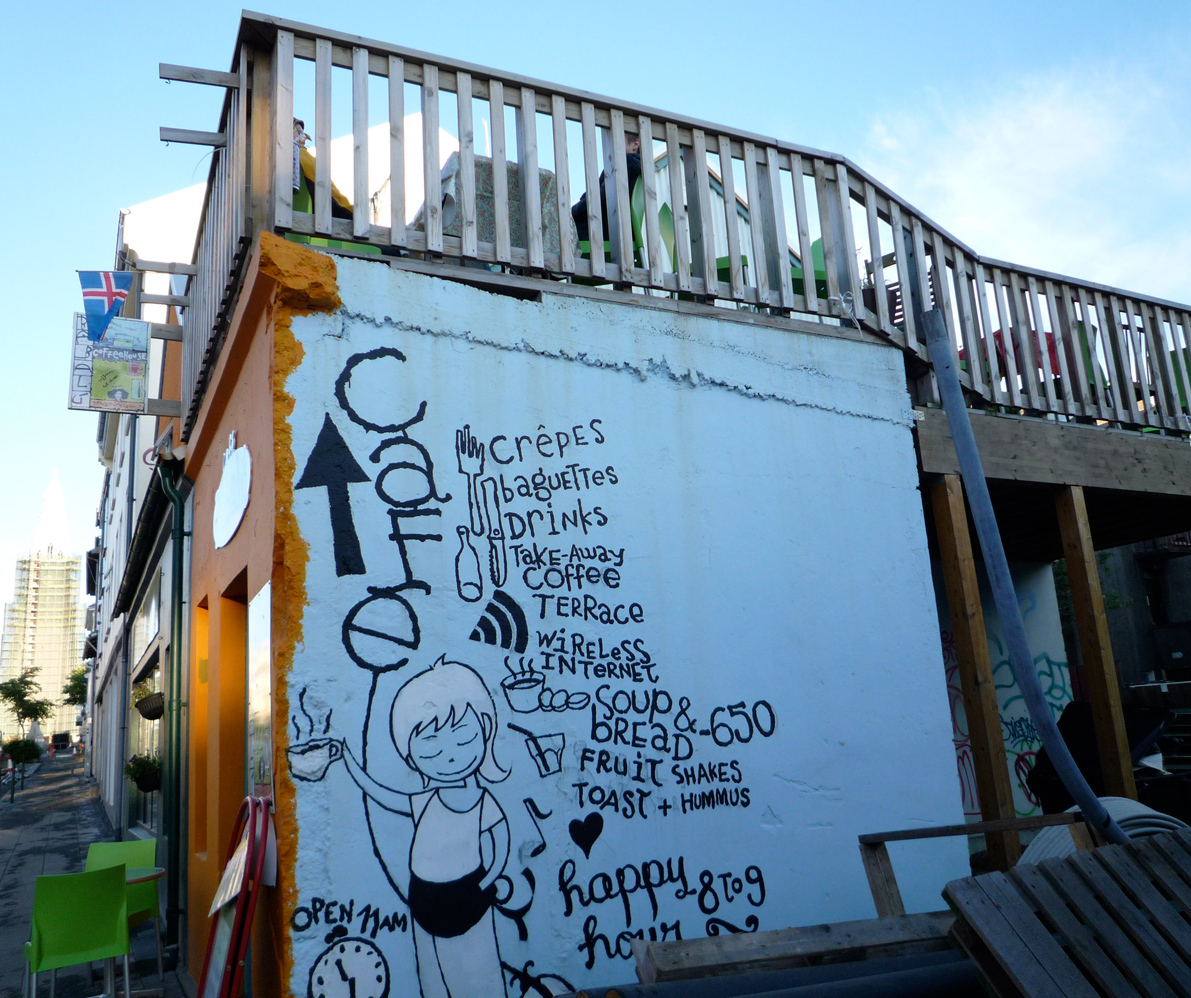 Café
crêpes
baguettes
Drinks
Take-Away
coffee
Terrace
wireless
Internet
Soup &
Bread -650
Fruit shakes
Toast + Hummus
happy 8 to 9
hour
Open 11AM
Coffeehouse